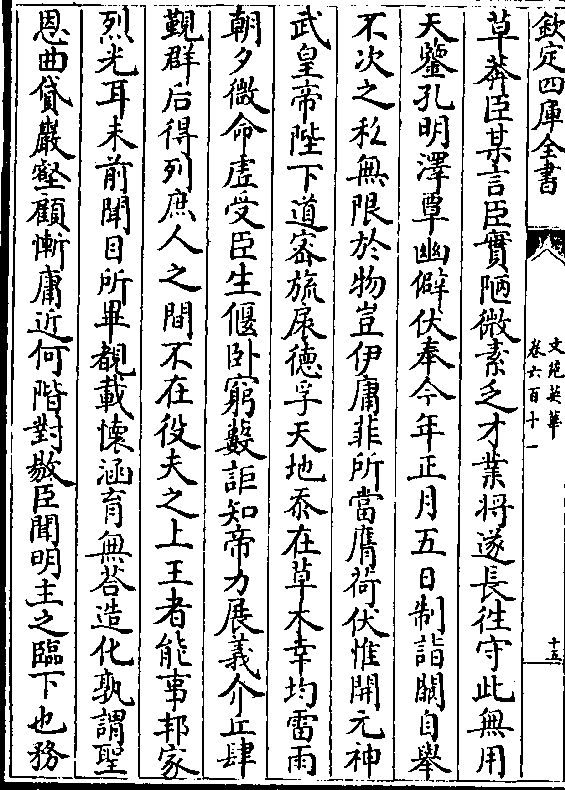 欽定四庫全書
文苑英華
卷六百十一
十五
草莽臣某言臣實陋微素乏才業將遂長往守此無用
天鑒孔明澤覃幽僻伏奉今年正月五日制詣闕自舉
不次之私無限於物豈伊庸菲所當膺荷伏惟開元神
武皇帝陛下道密旒扆德孚天地忝在草木幸均雷雨
朝夕微命虛受臣生偃臥窮藪詎知帝力展義介丘肆
覲群后得列庶人之間不在役夫之上王者能事邦家
烈光耳未前聞目所畢覩載懷涵育無荅造化孰謂聖
恩曲貸巖壑顧慚庸近何階對敭臣聞明主之臨下也務